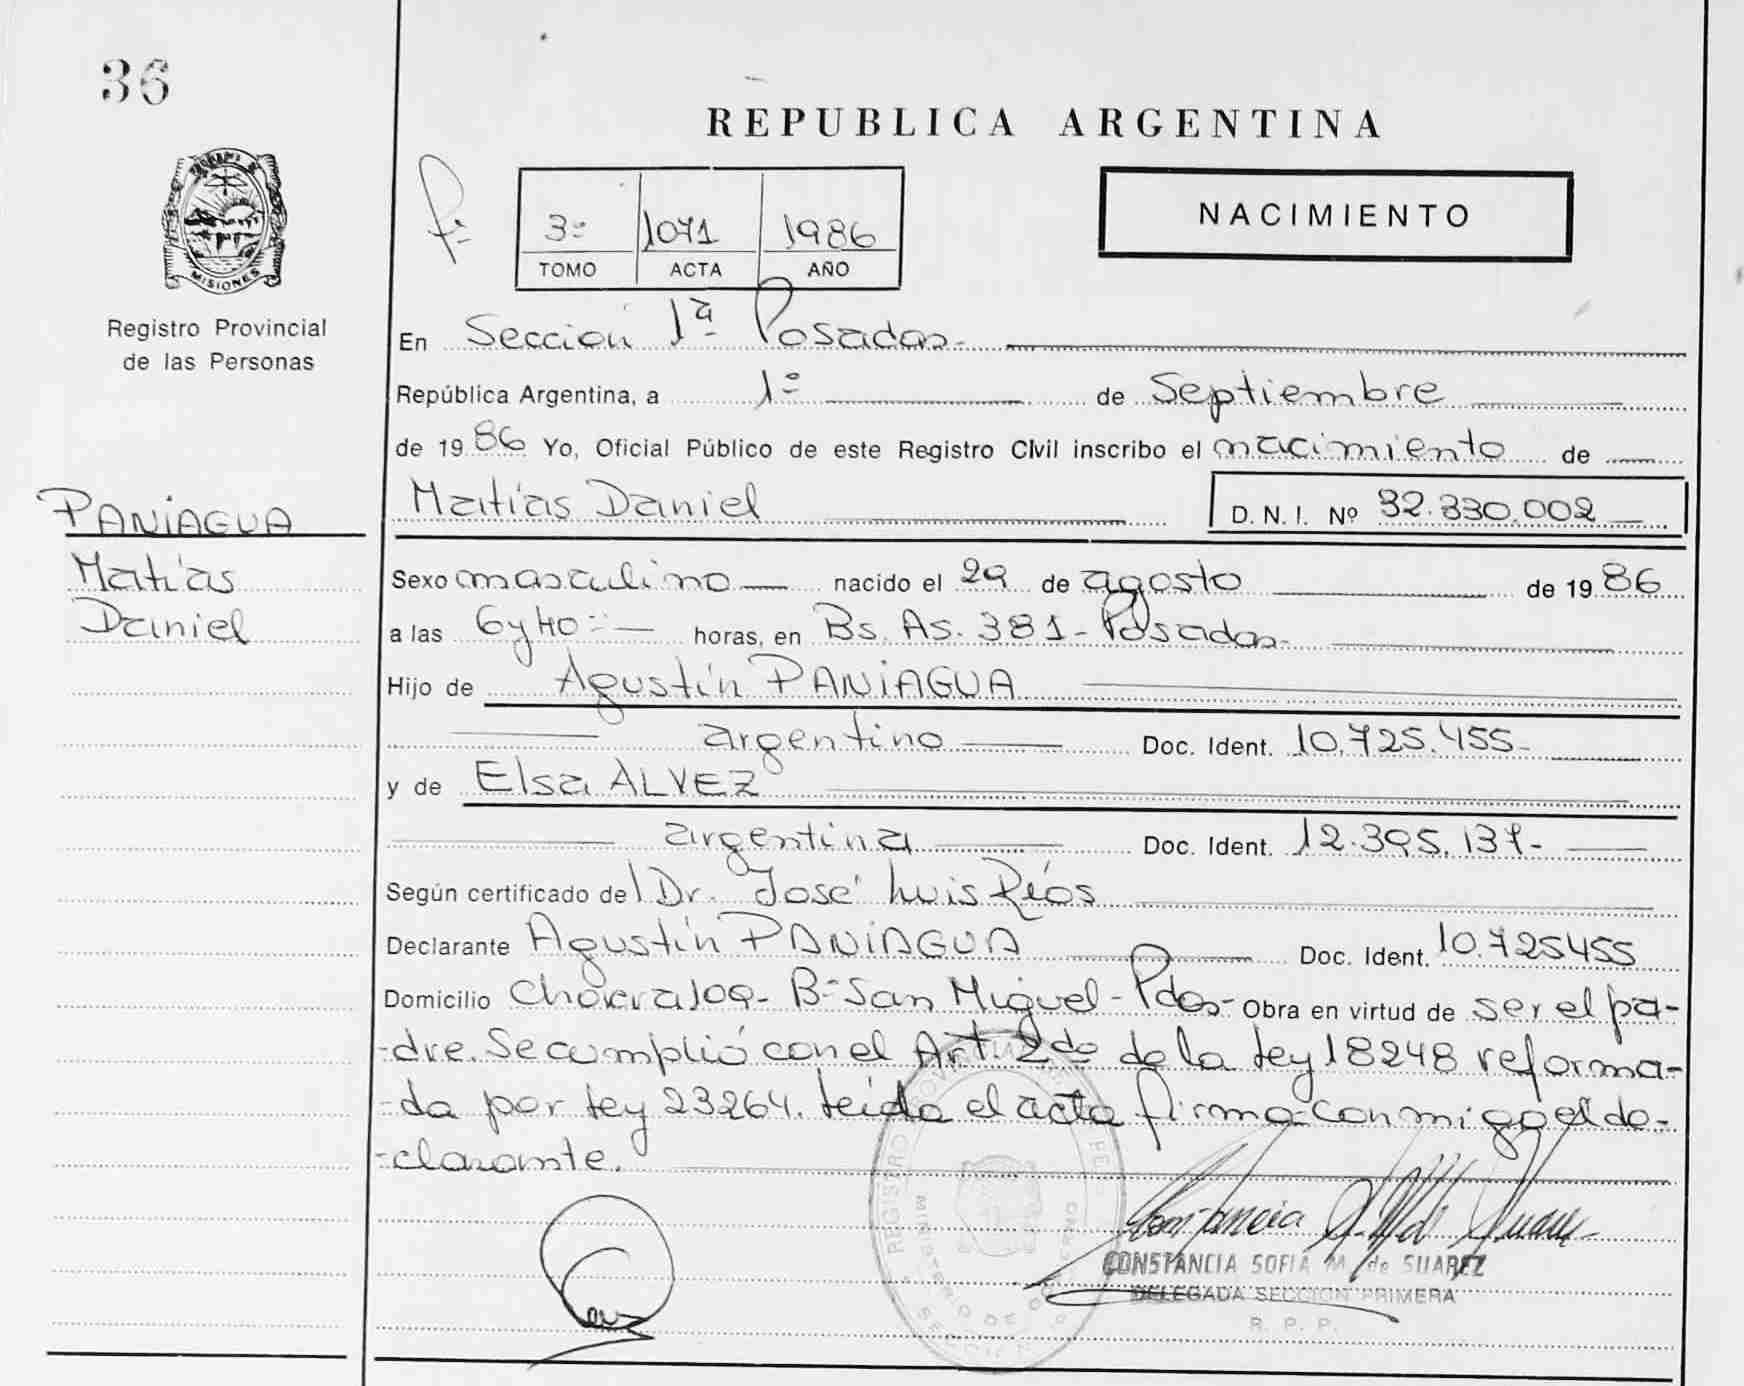 36
REPUBLICA ARGENTINA
3º 1071 1986
TOMO ACTA AÑO
NACIMIENTO
MISIONES
Registro Provincial
de las Personas
En Sección 1ª Posadas-
República Argentina, a 1º de Septiembre
de 1986 Yo, Oficial Público de este Registro Civil inscribo el nacimiento de
Matías Daniel D. N. I. Nº 32.330.002
PANIAGUA
Matías
Daniel
Sexo masculino nacido el 29 de agosto de 1986
a las 6 y 40 horas, en Bs. As. 381 - Posadas-
Hijo de Agustín PANIAGUA
argentino Doc. Ident. 10.725.455-
y de Elsa ALVEZ
argentina Doc. Ident. 12.395.137-
Según certificado del Dr. José Luis Ríos
Declarante Agustín PANIAGUA Doc. Ident. 10.725455
Domicilio Chacra 109- Bº San Miguel - Pdas- Obra en virtud de ser el pa-
-dre. Se cumplió con el Art. 2do de la Ley 18248 reforma-
-da por Ley 23264. Leída el acta firma conmigo el de-
-clarante.
CONSTANCIA SOFIA M. de SUAREZ
DELEGADA SECCION PRIMERA
R. P. P.